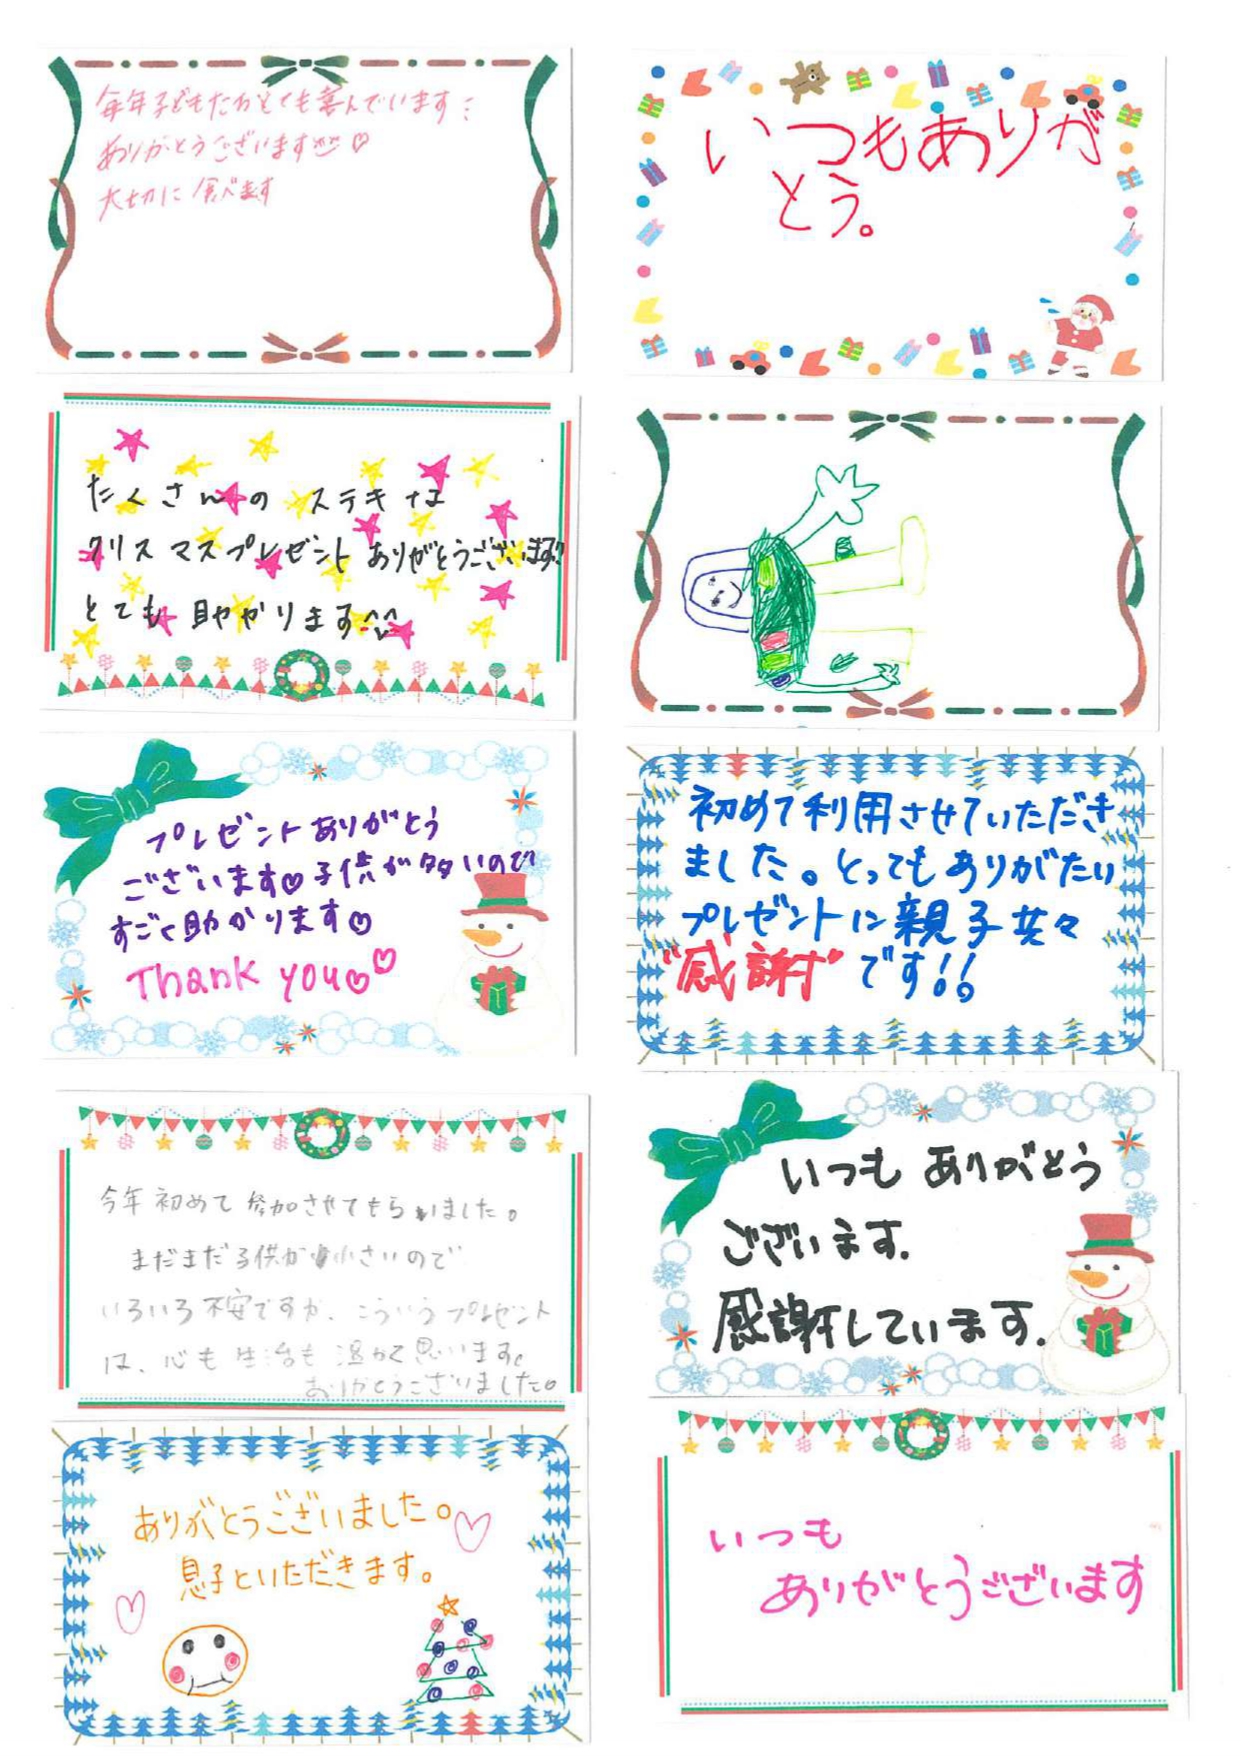 毎年子どもたちがとても喜んでいます
ありがとうございます♡
大切に食べます
いつもありが
とう。
たくさんの ステキな
クリスマスプレゼント ありがとうございます!!
とても 助かります^^
プレゼントありがとう
ございます♡子供が多いので
すごく助かります♡
Thank you♡♡
初めて利用させていただき
ました。とってもありがたい
プレゼントに親子共々
"感謝"です!!
今年初めて参加させてもらいました。
まだまだ子供が小さいので
いろいろ不安ですが、こういうプレゼント
は、心も生活も温かく思います。
ありがとうございました。
いつも ありがとう
ございます.
感謝しています.
ありがとうございました。
息子といただきます。
いつも
ありがとうございます